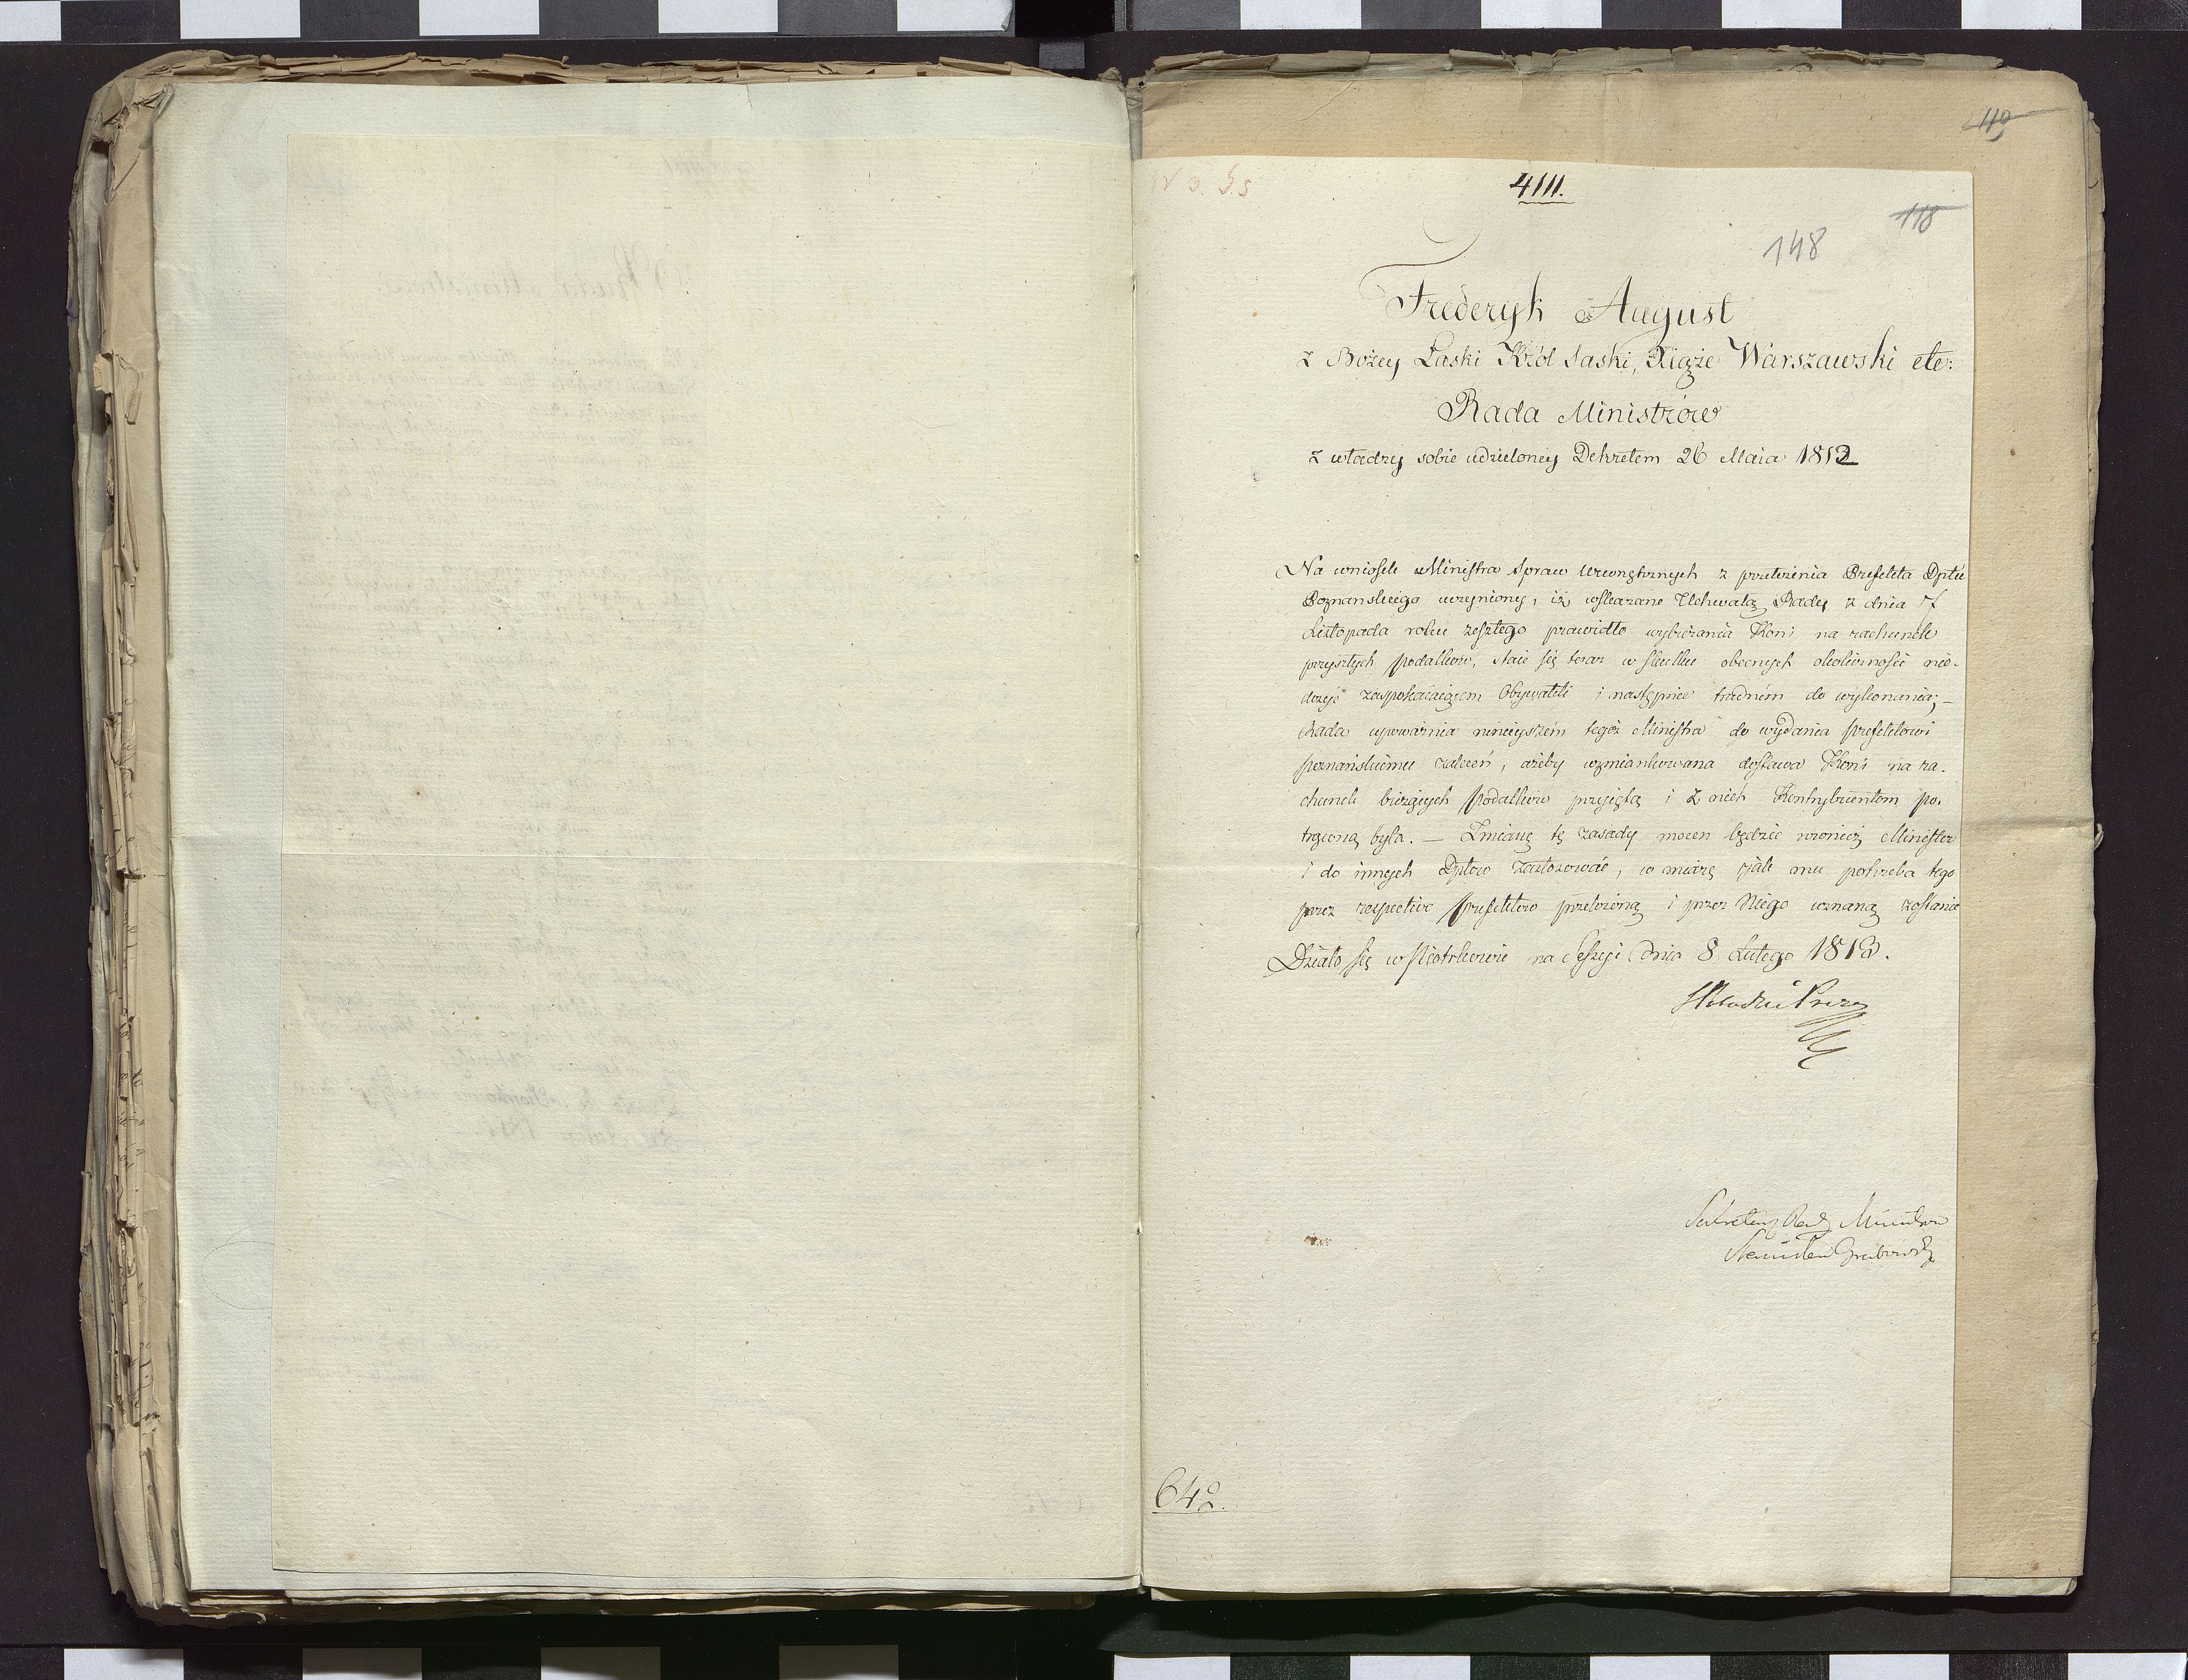 110
N 3. S.s
4111.
118
148
Fryderyk August
z Bożey Łaski Król Saski, Xiąże Warszawski etc:
Rada Ministrów
z władzy sobie udzieloney Dekretem 26 Maia 1812
Na wniosek Ministra Spraw Wewnętrznych z przełożenia Prefekta Dptu
Poznanskiego uczyniony, iż wskazane Uchwałą Rady z dnia 17
Listopada roku zeszłego prawidło wybierania Koni na rachunek
przyszłych podatków, staie się teraz w skutku obecnych okoliczności nie-
dosyć zaspokaiaiącem Obywateli i następnie trudném do wykonania; –
Rada upoważnia ninieyszém tegoż Ministra do wydania prefektowi
poznańskiemu zaleceń, ażeby wzmiankowana dostawa Koni na ra-
chunek bieżących podatków przyiętą i z nich Kontrybuentom po-
trąconą była. — Zmianę tę zasady mocen będzie również Minister
i do innych Dptów zastosować, w miarę jak mu potrzeba tego
przez respective prefektów przełożoną i przez Niego uznaną zostanie
Działo się w Piotrkowie na Sessyi dnia 8 Lutego 1813.
St Potocki Prezes
Sekretarz Rady Ministrów
Stanisław Grabowski
642.